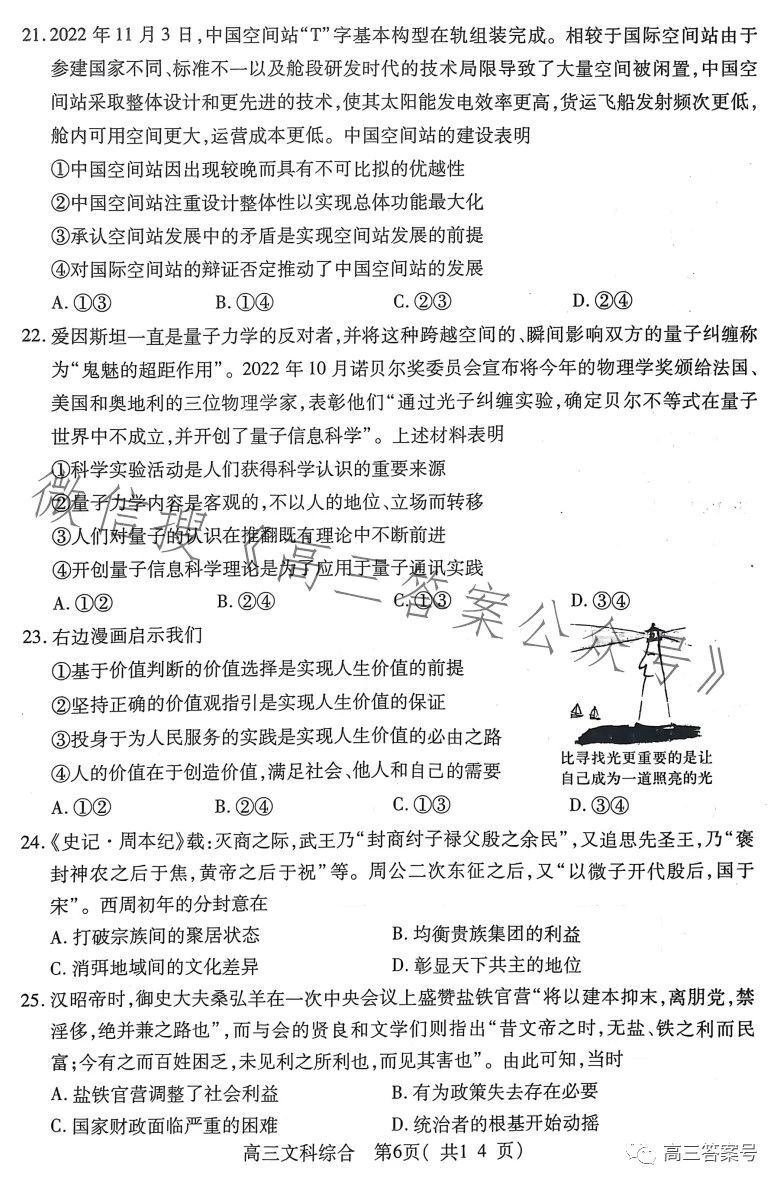 21.2022年11月3日,中国空间站“T”字基本构型在轨组装完成。相较于国际空间站由于
参建国家不同、标准不一以及舱段研发时代的技术局限导致了大量空间被闲置,中国空
间站采取整体设计和更先进的技术,使其太阳能发电效率更高,货运飞船发射频次更低,
舱内可用空间更大,运营成本更低。中国空间站的建设表明
①中国空间站因出现较晚而具有不可比拟的优越性
②中国空间站注重设计整体性以实现总体功能最大化
③承认空间站发展中的矛盾是实现空间站发展的前提
④对国际空间站的辩证否定推动了中国空间站的发展
A.①③ B.①④ C.②③ D.②④
22.爱因斯坦一直是量子力学的反对者,并将这种跨越空间的、瞬间影响双方的量子纠缠称
为“鬼魅的超距作用”。2022年10月诺贝尔奖委员会宣布将今年的物理学奖颁给法国、
美国和奥地利的三位物理学家,表彰他们“通过光子纠缠实验,确定贝尔不等式在量子
世界中不成立,并开创了量子信息科学”。上述材料表明
①科学实验活动是人们获得科学认识的重要来源
②量子力学内容是客观的,不以人的地位、立场而转移
③人们对量子的认识在推翻既有理论中不断前进
④开创量子信息科学理论是为了应用于量子通讯实践
A.①② B.②④ C.①③ D.③④
23.右边漫画启示我们
①基于价值判断的价值选择是实现人生价值的前提
②坚持正确的价值观指引是实现人生价值的保证
③投身于为人民服务的实践是实现人生价值的必由之路
④人的价值在于创造价值,满足社会、他人和自己的需要
A.①② B.②④ C.①③ D.③④
比寻找光更重要的是让
自己成为一道照亮的光
24.《史记·周本纪》载:灭商之际,武王乃“封商纣子禄父殷之余民”,又追思先圣王,乃“褒
封神农之后于焦,黄帝之后于祝”等。周公二次东征之后,又“以微子开代殷后,国于
宋”。西周初年的分封意在
A.打破宗族间的聚居状态 B.均衡贵族集团的利益
C.消弭地域间的文化差异 D.彰显天下共主的地位
25.汉昭帝时,御史大夫桑弘羊在一次中央会议上盛赞盐铁官营“将以建本抑末,离朋党,禁
淫侈,绝并兼之路也”,而与会的贤良和文学们则指出“昔文帝之时,无盐、铁之利而民
富;今有之而百姓困乏,未见利之所利也,而见其害也”。由此可知,当时
A.盐铁官营调整了社会利益 B.有为政策失去存在必要
C.国家财政面临严重的困难 D.统治者的根基开始动摇
高三文科综合 第6页( 共1 4 页)
微信搜《高三答案公众号》
高三答案号